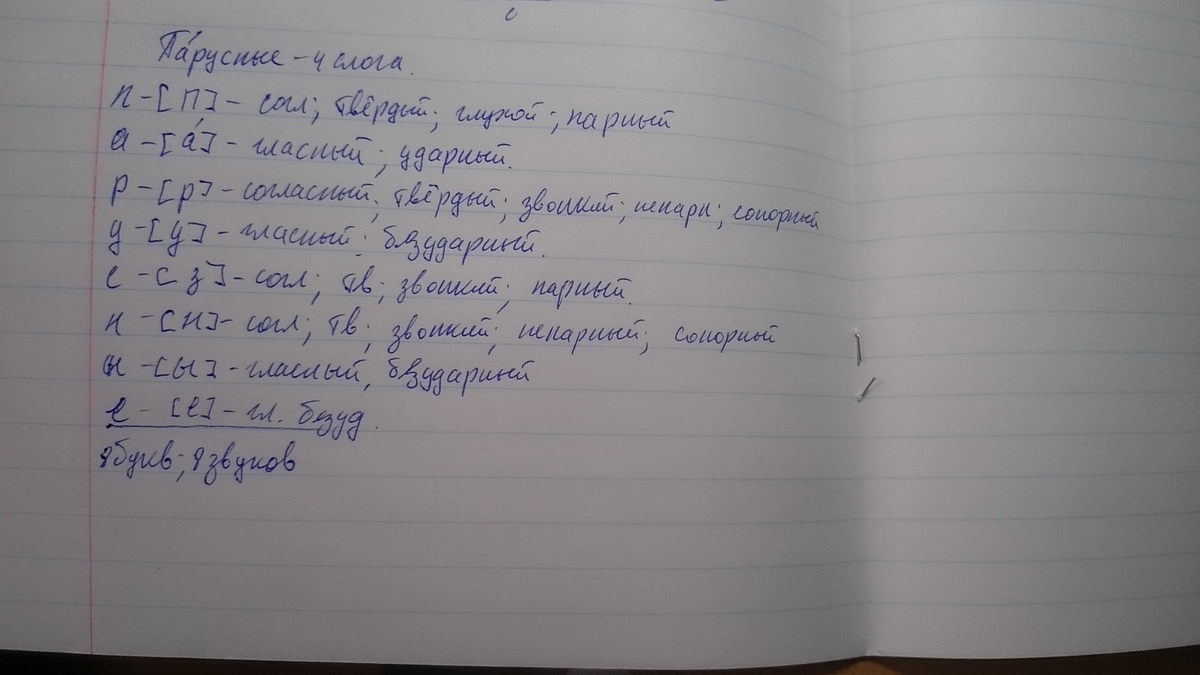 Па́русные - 4 слога.
п - [п] - согл; твёрдый; глухой; парный
а - [а́] - гласный; ударный.
р - [р] - согласный; твёрдый; звонкий; непарн; сонорный
у - [у] - гласный; безударный.
с - [з] - согл; тв; звонкий; парный.
н - [н] - согл; тв; звонкий; непарный; сонорный
ы - [ы] - гласный, безударный
е - [е] - гл. безуд.
8букв; 8звуков